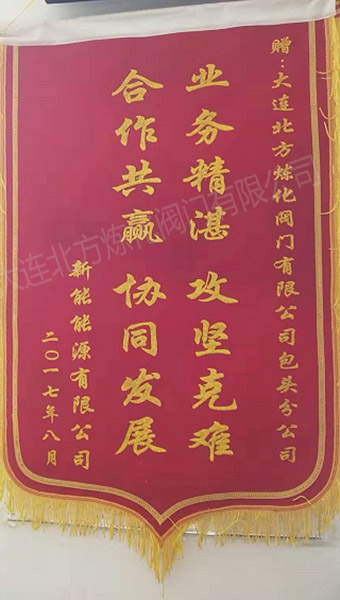 赠：大连北方炼化阀门有限公司包头分公司
业务精湛 攻坚克难
合作共赢 协同发展
新能能源有限公司
二〇一七年八月
大连北方炼化阀门有限公司